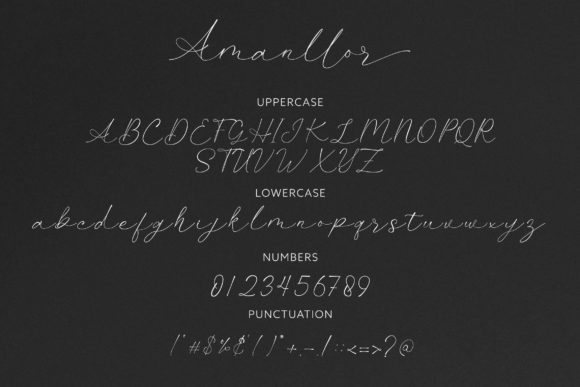 Amanllor
UPPERCASE
ABCDEFGHIJKLMNOPQR
STUVWXYZ
LOWERCASE
abcdefghijklmnopqrstuvwxyz
NUMBERS
0123456789
PUNCTUATION
!"#$%&'()*+,-./:;<=>?@